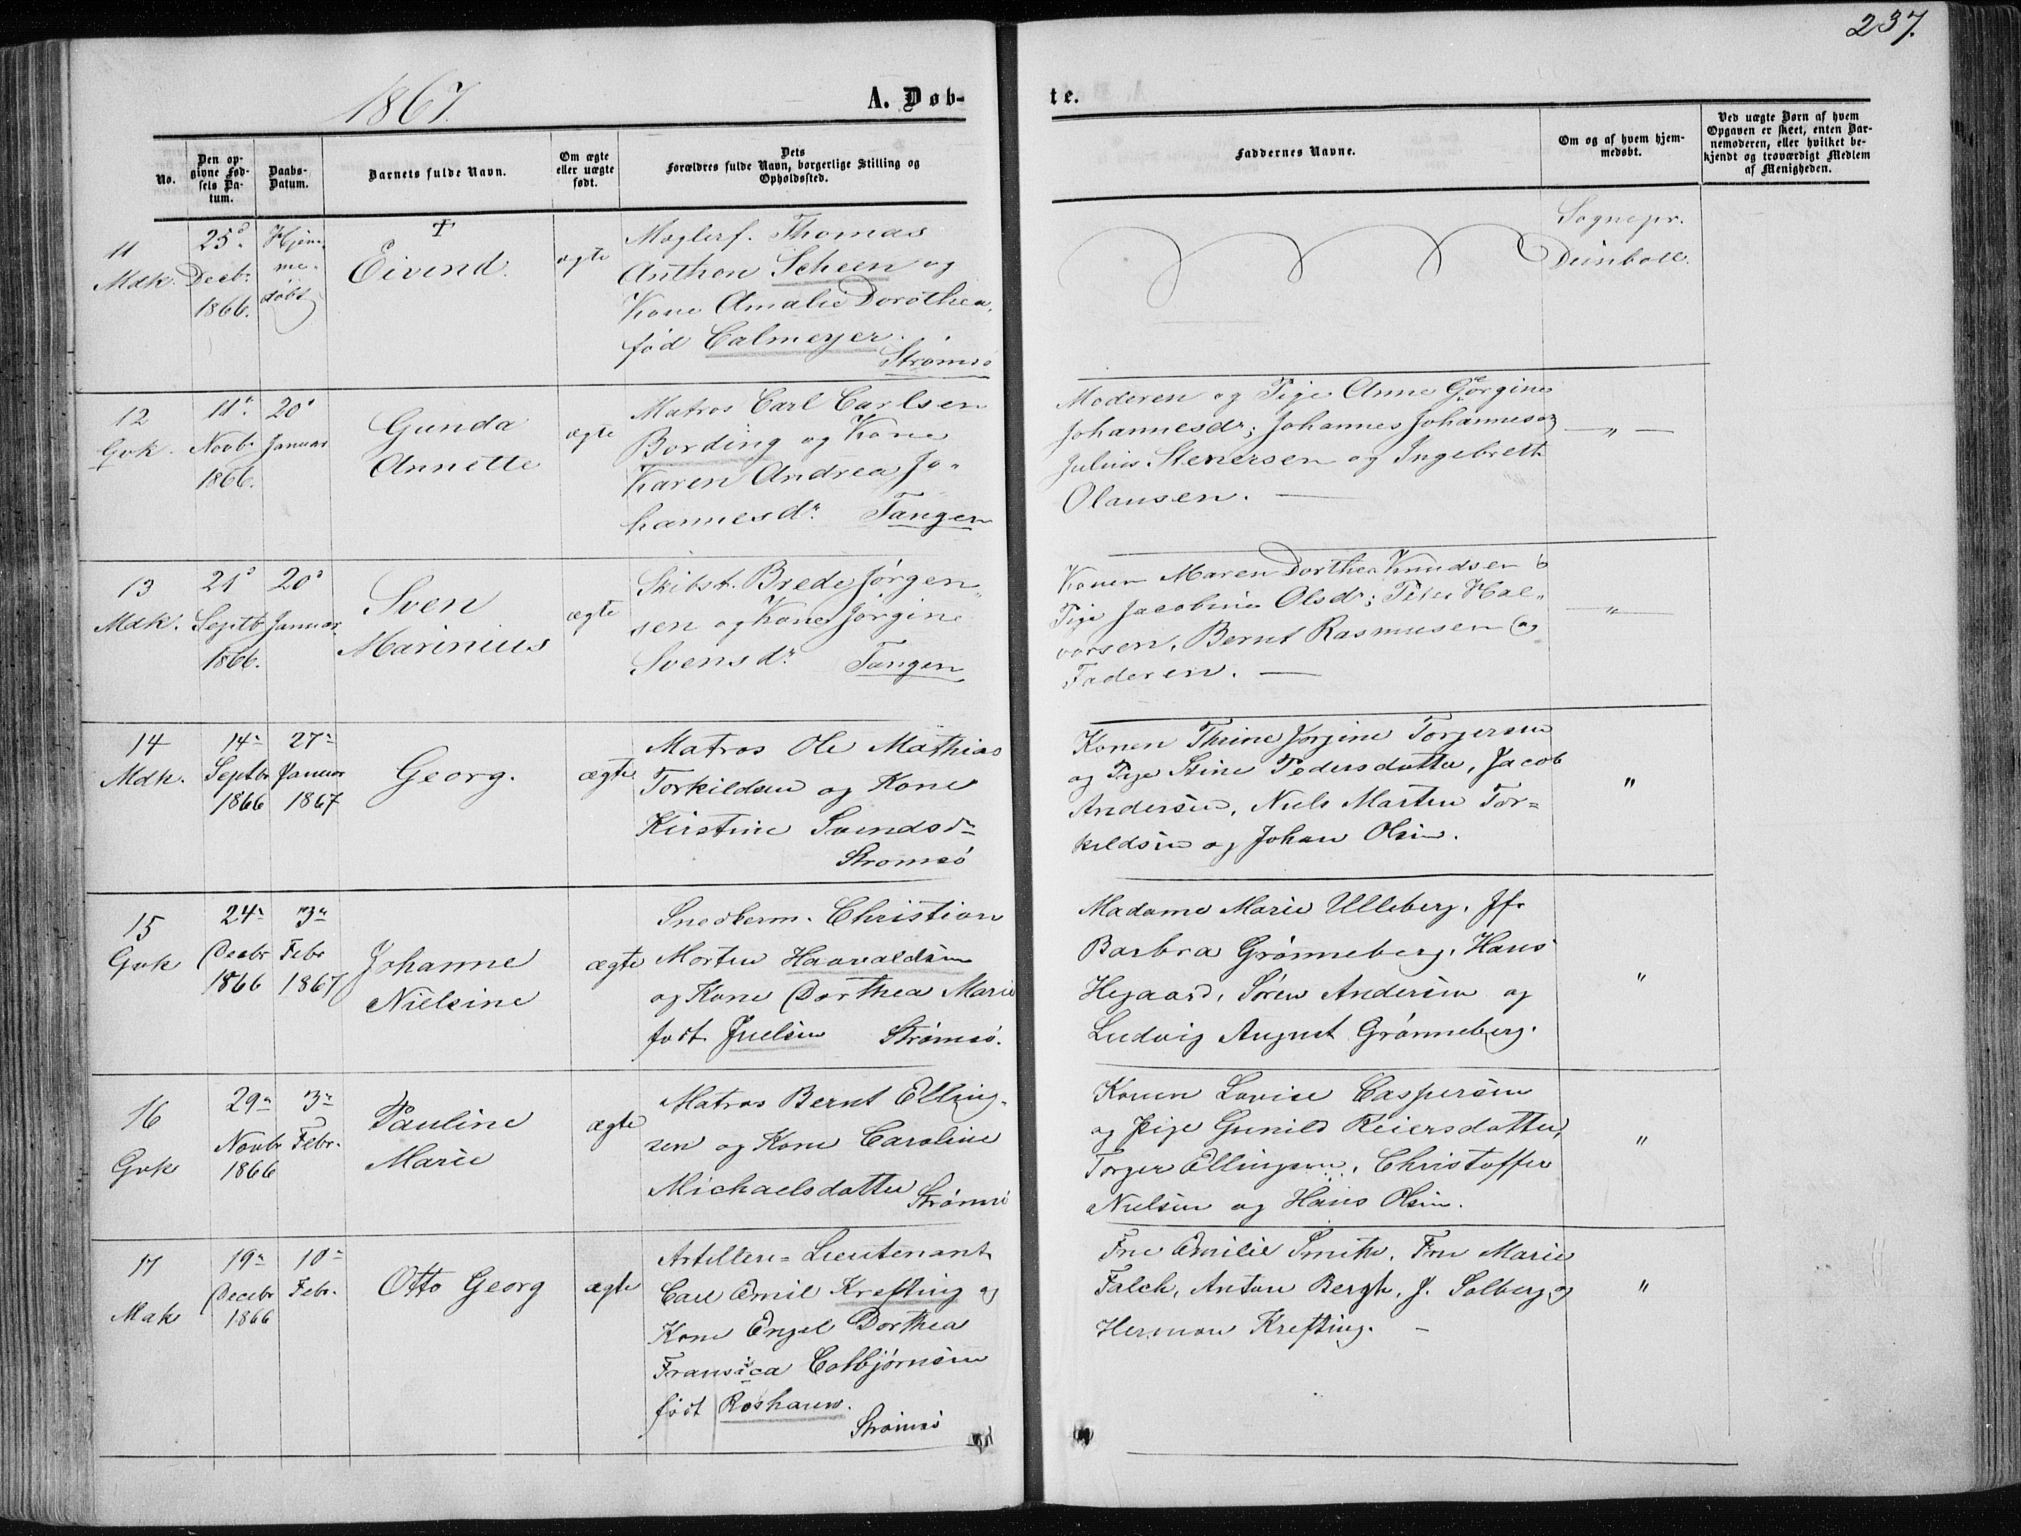 237.
1867.
A. Døb-
te.
No.
Den op-
givne Fød-
sels Da-
tum.
Daabs-
Datum.
Barnets fulde Navn.
Om ægte
eller uægte
født.
Dets
Forældres fulde Navn, borgerlige Stilling og
Opholdssted.
Faddernes Navne.
Om og af hvem hjem-
medøbt.
Ved uægte Børn af hvem
Opgaven er skeet, enten Bar-
nemoderen, eller hvilket be-
kjendt og troværdigt Medlem
af Menigheden.
11
Mdk.
25d
Decbr
1866.
Hjem-
me-
døbt
+
Eivind.
ægte
Mæglerf. Thomas
Anthon Scheen og
Kone Amalie Dorothea,
fød Calmeyer.
Strømsø
Sognepr.
Deinboll.
12
Gvk.
11d
Novb.
1866.
20d
Januar
Gunda
Annette
ægte
Matros Carl Carlsen
Bording og Kone
Karen Andrea Jo-
hannesdr. Tangen
Moderen og Pige Anne Gørgine
Johannesdr; Johannes Johannesen
Julius Stenersen og Ingebreth
Olausen. —
— " —
13
Mdk.
21d
Septb.
1866.
20d
Januar
Sven
Marinius
ægte
Skibst. Brede Jørgen-
sen og Kone Jørgine
Svensdr. Tangen
Konen Maren Dorthea Knudsen &
Pige Jacobine Olsdr; Peter Hal-
vorsen, Bernt Rasmusen og
Faderen. —
— " —
14
Mdk.
14de
Septbr
1866
27de
Januar
1867
Georg.
ægte
Matros Ole Mathias
Torkildsen og Kone
Kirstine Svendsdr
Strømsø
Konen Thrine Jørgine Torgersen
og Pige Stine Pedersdatter, Jacob
Andersen, Niels Marten Tor-
kildsen og Johan Olsen.
"
15
Gvk
24de
Decbr
1866
3de
Febr
1867
Johanne
Nielsine
ægte
Snedkerm. Christian
Morten Haavaldsen
og Kone Dorthea Marie
født Juelsen Strømsø.
Madame Marie Ulleberg, Jfr
Barbra Grønneberg, Hans
Hegaard, Søren Andersen og
Ludvig August Grønneberg.
"
16
Gvk
29de
Novbr
1866
3de
Febr.
Pauline
Marie
ægte
Matros Bernt Elling-
sen og Kone Caroline
Michaelsdatter Strømsø
Konen Lovise Caspersen
og Pige Gunild Reiersdatter,
Torger Ellingsen, Christoffer
Nielsen og Hans Olsen.
"
17
Mdk
19de
Decbr
1866
10de
Febr.
Otto Georg
ægte
Artilleri-Lieutenant
Carl Emil Krefting og
Kone Engel Dorthea
Fransica Colbjørnsen
født Roshauw.
Strømsø
Frue Emilie Smith, Frue Marie
Falch, Anton Bergh, J. Solberg og
Herman Krefting. —
"